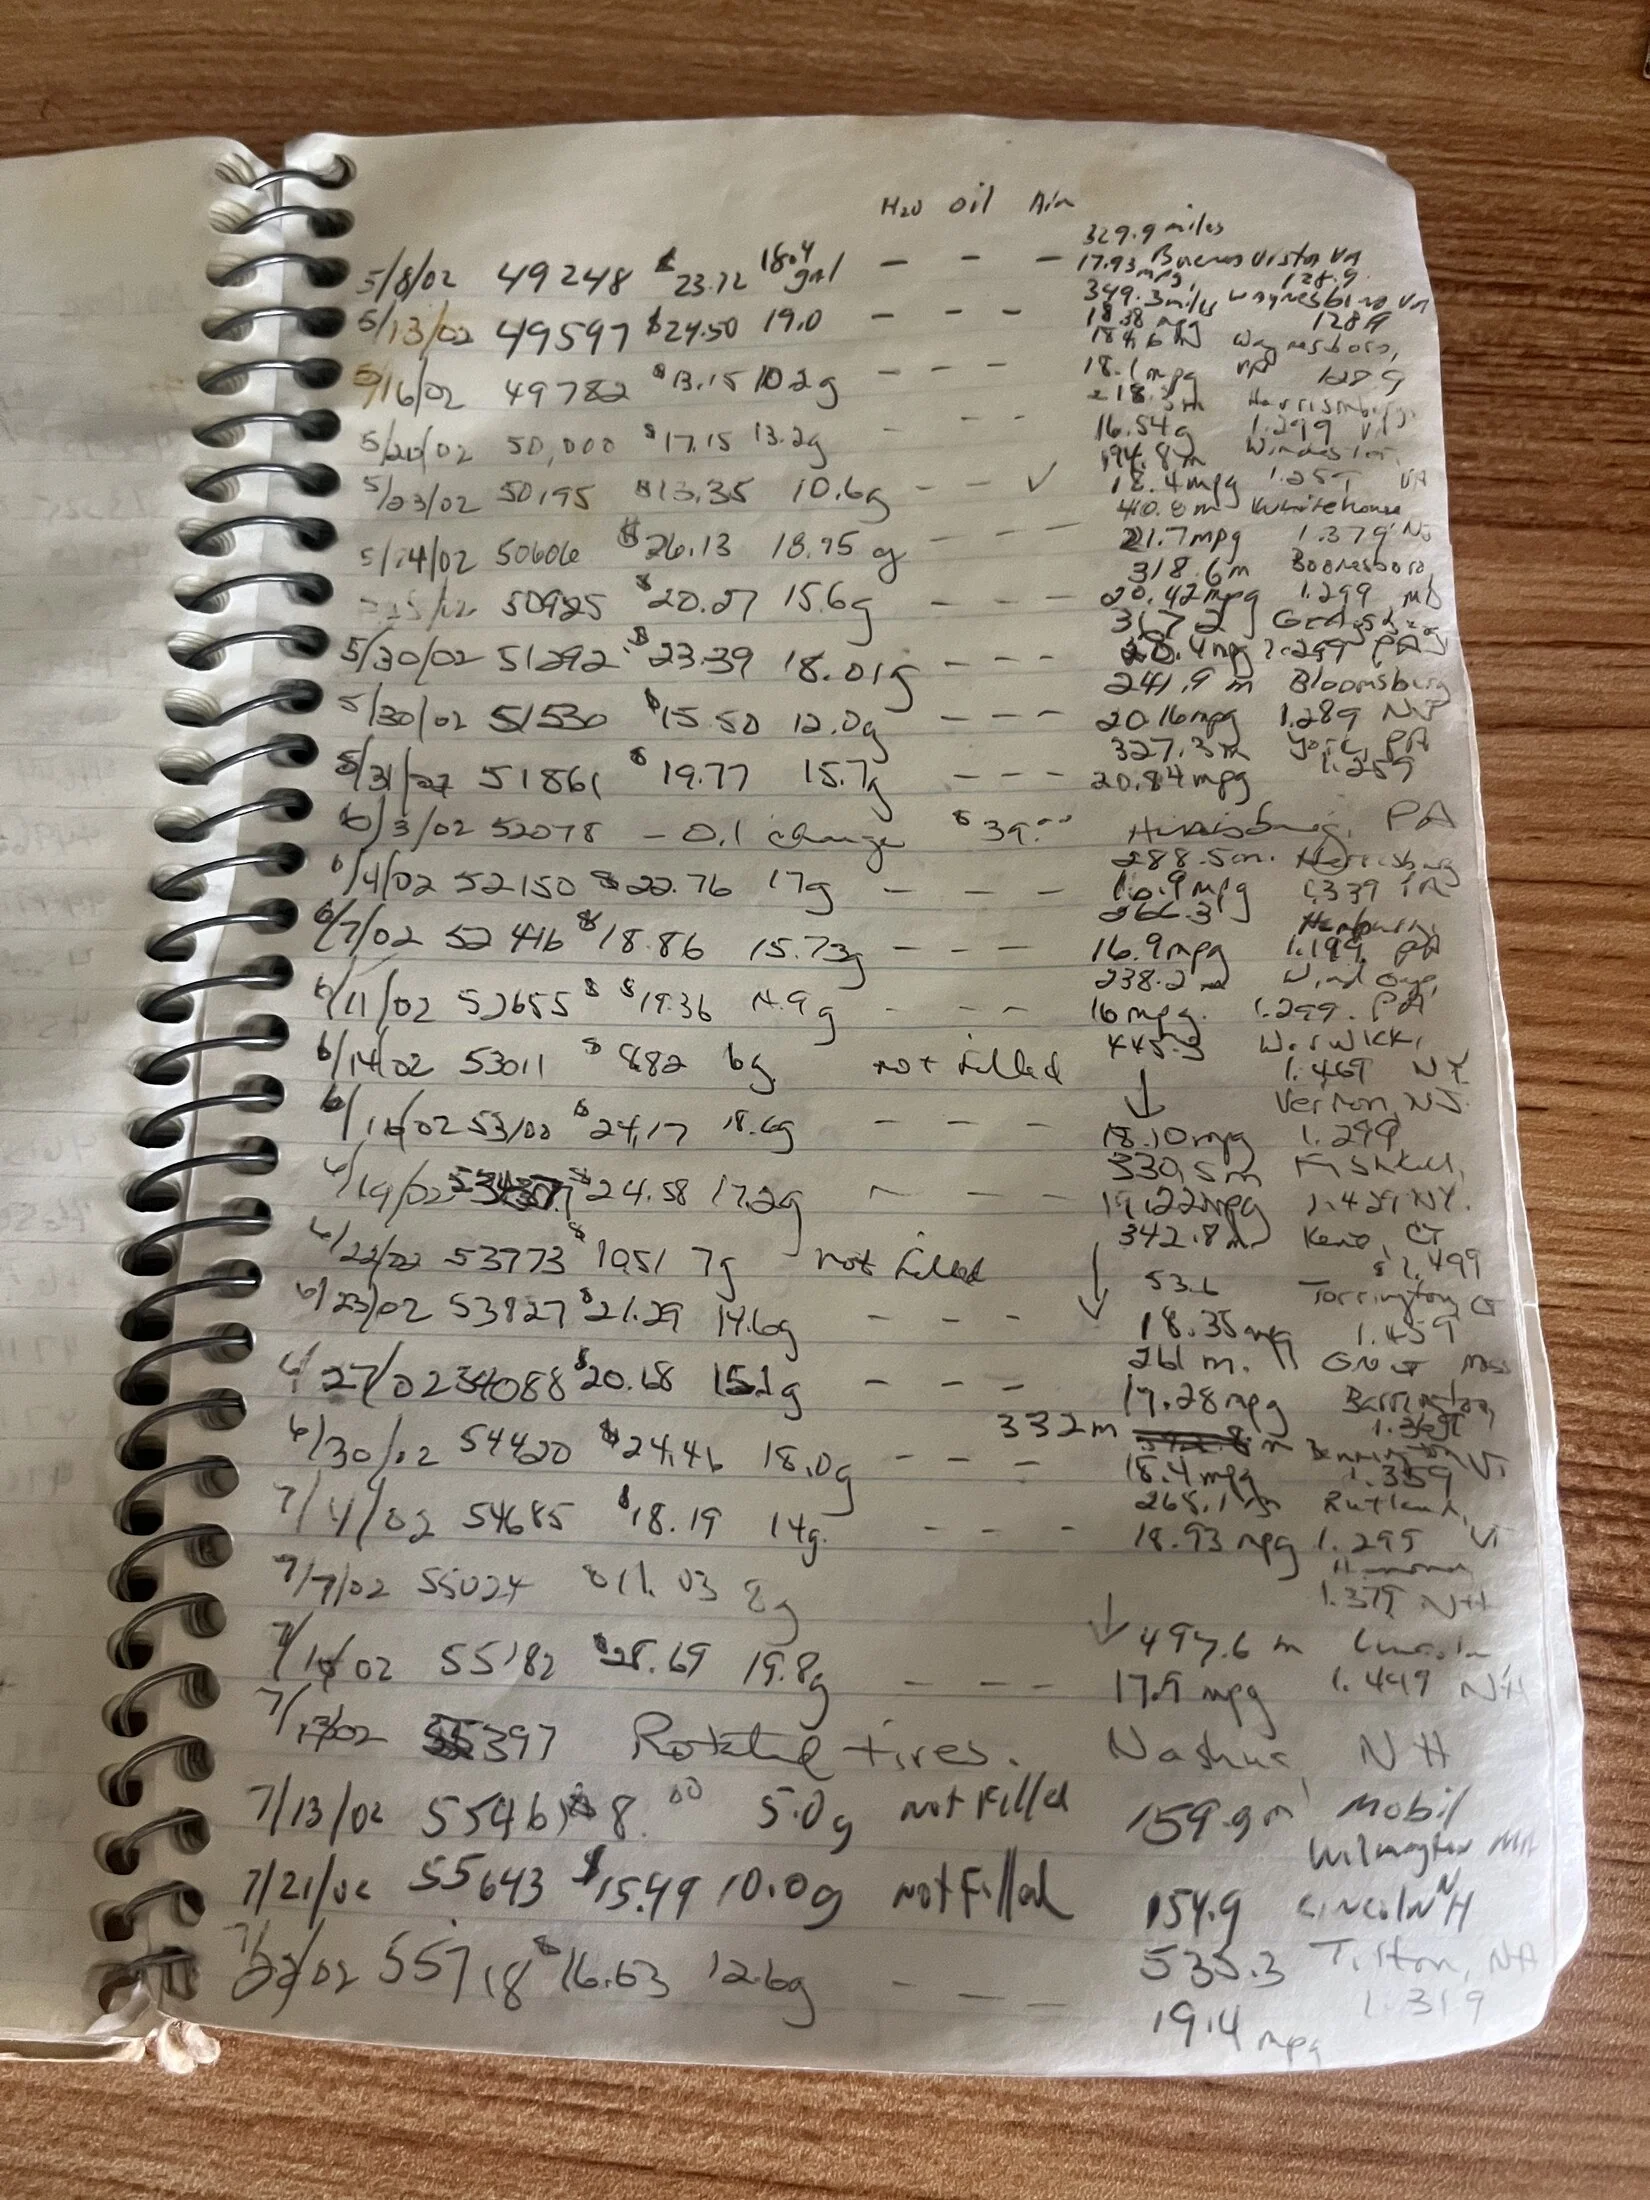 H2O oil Air
329.9 miles
5/8/02 49248 $23.72 18.4 gal - - - 17.93 mpg Buena Vista VA 128.9
349.3 miles Waynesboro VA
5/13/02 49597 $24.50 19.0 - - - 18.38 mpg 128.9
184.6 m Waynesboro,
5/16/02 49782 $13.15 10.2g - - - 18.1 mpg VA 128.9
218.3m Harrisonburg,
5/20/02 50,000 $17.15 13.2g - - - 16.54g 1.299 VA
194.8m Winchester,
5/23/02 50195 $13.35 10.6g - - ✓ 18.4mpg 1.259 VA
410.8m Whitehouse
5/24/02 50606 $26.13 18.95 g - - - 21.7mpg 1.379 NJ
318.6m Boonesboro,
50925 $20.27 15.6g - - - 20.42mpg 1.299 MD
5/30/02 51292 $23.39 18.01g - - - 20.4mpg 1.299 PA
241.9 m Bloomsbury
5/30/02 51530 $15.50 12.0g - - - 20.16mpg 1.289 NJ
327.3m York, PA
5/31/02 51861 $19.77 15.7g - - - 20.84mpg 1.259
6/3/02 52078 - 0.1 change $39.00 Harrisburg, PA
288.5m. Harrisburg
6/4/02 52150 $22.76 17g - - - 16.9mpg 1.339 PA
266.3 Hamburg,
6/7/02 52416 $18.86 15.73g - - - 16.9mpg 1.199 PA
238.2 m Wind Gap,
6/11/02 52655 $ $19.36 14.9g - - - 16 mpg. 1.299. PA
6/14/02 53011 $8.82 6g not filled 445.3 Warwick,
↓ 1.469 NY
Vernon, NJ.
6/16/02 53100 $24.17 18.6g - - - 18.10mpg 1.299
330.5m Fishkill,
6/19/02 $24.58 17.2g - - - 19.22mpg 1.429 NY.
342.8m Kent, CT
6/22/02 53773 $10.51 7g not filled ↓ $1.499
53.6 Torrington CT
6/23/02 53827 $21.29 14.6g - - - 18.35mpg 1.459
261 m. Great Mass
6/27/02 54088 $20.68 15.1g - - - 17.28mpg Barrington,
1.369
332m Bennington VT
6/30/02 54420 $24.46 18.0g - - - 18.4mpg 1.359
265.1m Rutland,
7/4/02 54685 $18.19 14g. - - - 18.93 mpg 1.299 VT
7/7/02 55024 $11.03 8g 1.379 NH
↓ 497.6 m Lincoln
7/10/02 55182 $28.69 19.8g - - - 17.9 mpg 1.449 NH
7/13/02 55397 Rotated tires. Nashua, NH
7/13/02 55461 $8.00 5.0g not filled 159.9m Mobil
Wilmington MA
7/21/02 55643 $15.49 10.0g not filled 154.9 Lincoln NH
7/22/02 55718 $16.63 12.6g - - - 535.3 Tilton, NH
19.4 mpg 1.319